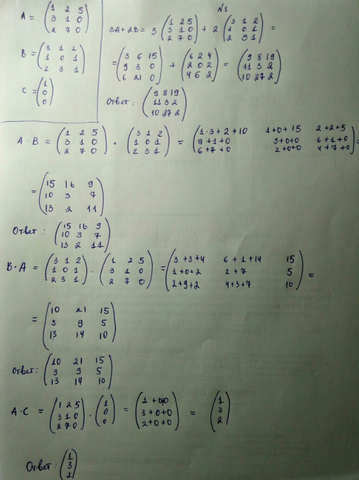 A = (1 2 5
3 1 0
2 7 0)
B = (3 1 2
1 0 1
2 3 1)
C = (1
0
0)
N1
3A + 2B = 3 (1 2 5
3 1 0
2 7 0) + 2 (3 1 2
1 0 1
2 3 1) =
= (3 6 15
9 3 0
6 21 0) + (6 2 4
2 0 2
4 6 2) = (9 8 19
11 3 2
10 27 2)
Ответ: (9 8 19
11 3 2
10 27 2)
A B = (1 2 5
3 1 0
2 7 0) · (3 1 2
1 0 1
2 3 1) = (1·3+2+10 1+0+15 2+2+5
9+1+0 3+0+0 6+1+0
6+7+0 2+0+0 4+7+0) =
= (15 16 9
10 3 7
13 2 11)
Ответ: (15 16 9
10 3 7
13 2 11)
B·A = (3 1 2
1 0 1
2 3 1) · (1 2 5
3 1 0
2 7 0) = (3+3+4 6+1+14 15
1+0+2 2+7 5
2+9+2 4+3+7 10) =
= (10 21 15
3 9 5
13 14 10)
Ответ: (10 21 15
3 9 5
13 14 10)
A·C = (1 2 5
3 1 0
2 7 0) · (1
0
0) = (1+0+0
3+0+0
2+0+0) = (1
3
2)
Ответ: (1
3
2)